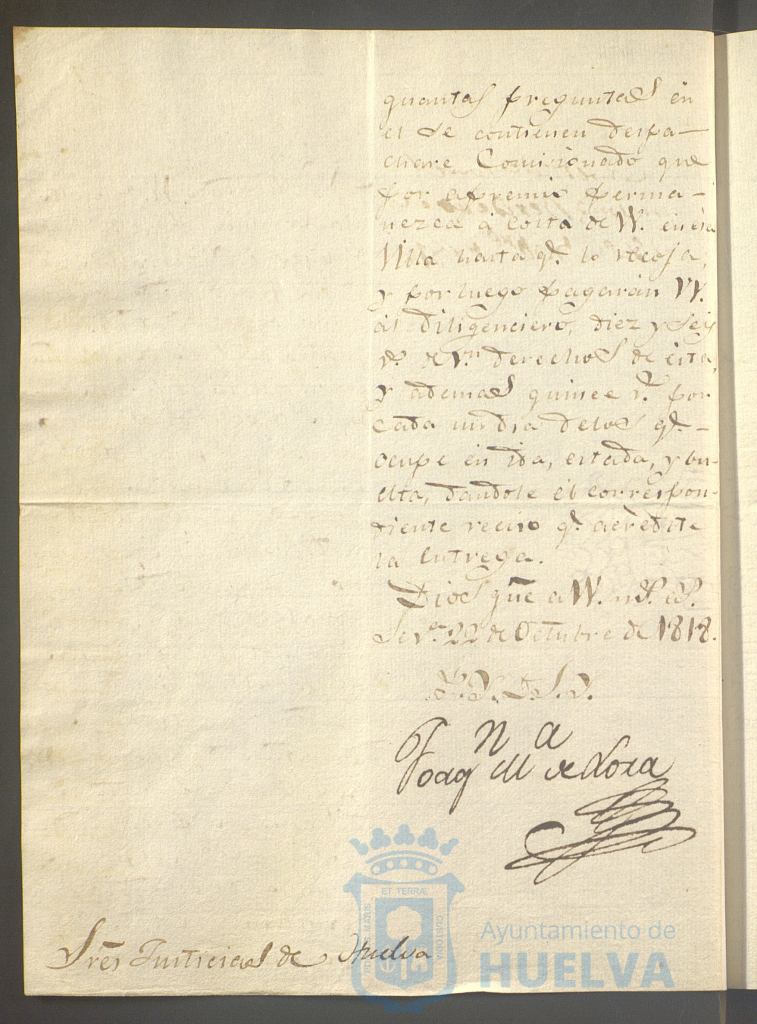 quantas preguntas en
el se contienen despa-
chare Comisionado que
por apremio perma-
nezca à costa de VV. en esa
Villa hasta qe. lo recoja,
y por luego pagarán VV.
al Diligenciero, diez y seis
rs. de vn. derechos de esta,
y ademas quince rs. por
cada un dia delos qe.
ocupe en ida, estada, y bu-
elta, dandole el correspon-
diente recivo qe. acredite
la entrega.
Dios gũe a VV. ms. as.
Seva. 22 de Octubre de 1818.
Joaqn Ma de Lora
Sres Justicias de Huelva
ET TERRÆ
Ayuntamiento de
HUELVA